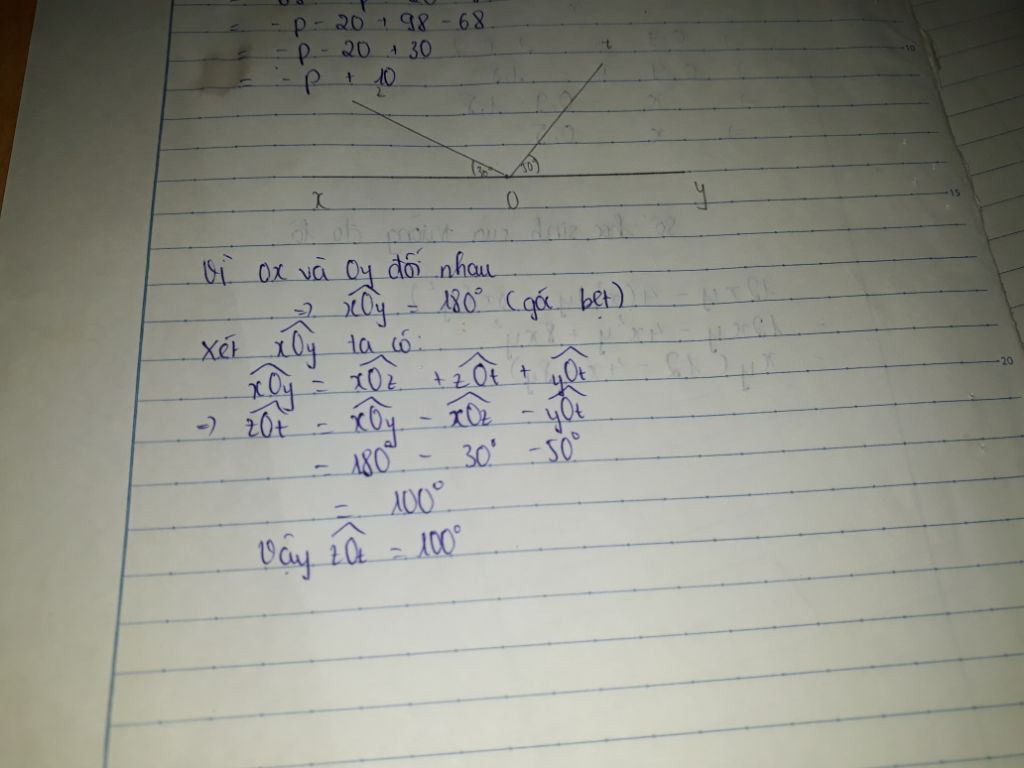 = - p - 20 + 98 - 68
= - p - 20 + 30
= - p + 10
z
t
30
50
x O y
Vì Ox và Oy đối nhau
=> xOy = 180° (góc bẹt)
Xét xOy ta có:
xOy = xOz + zOt + yOt
=> zOt = xOy - xOz - yOt
= 180° - 30° - 50°
= 100°
Vậy zOt = 100°
10
15
20